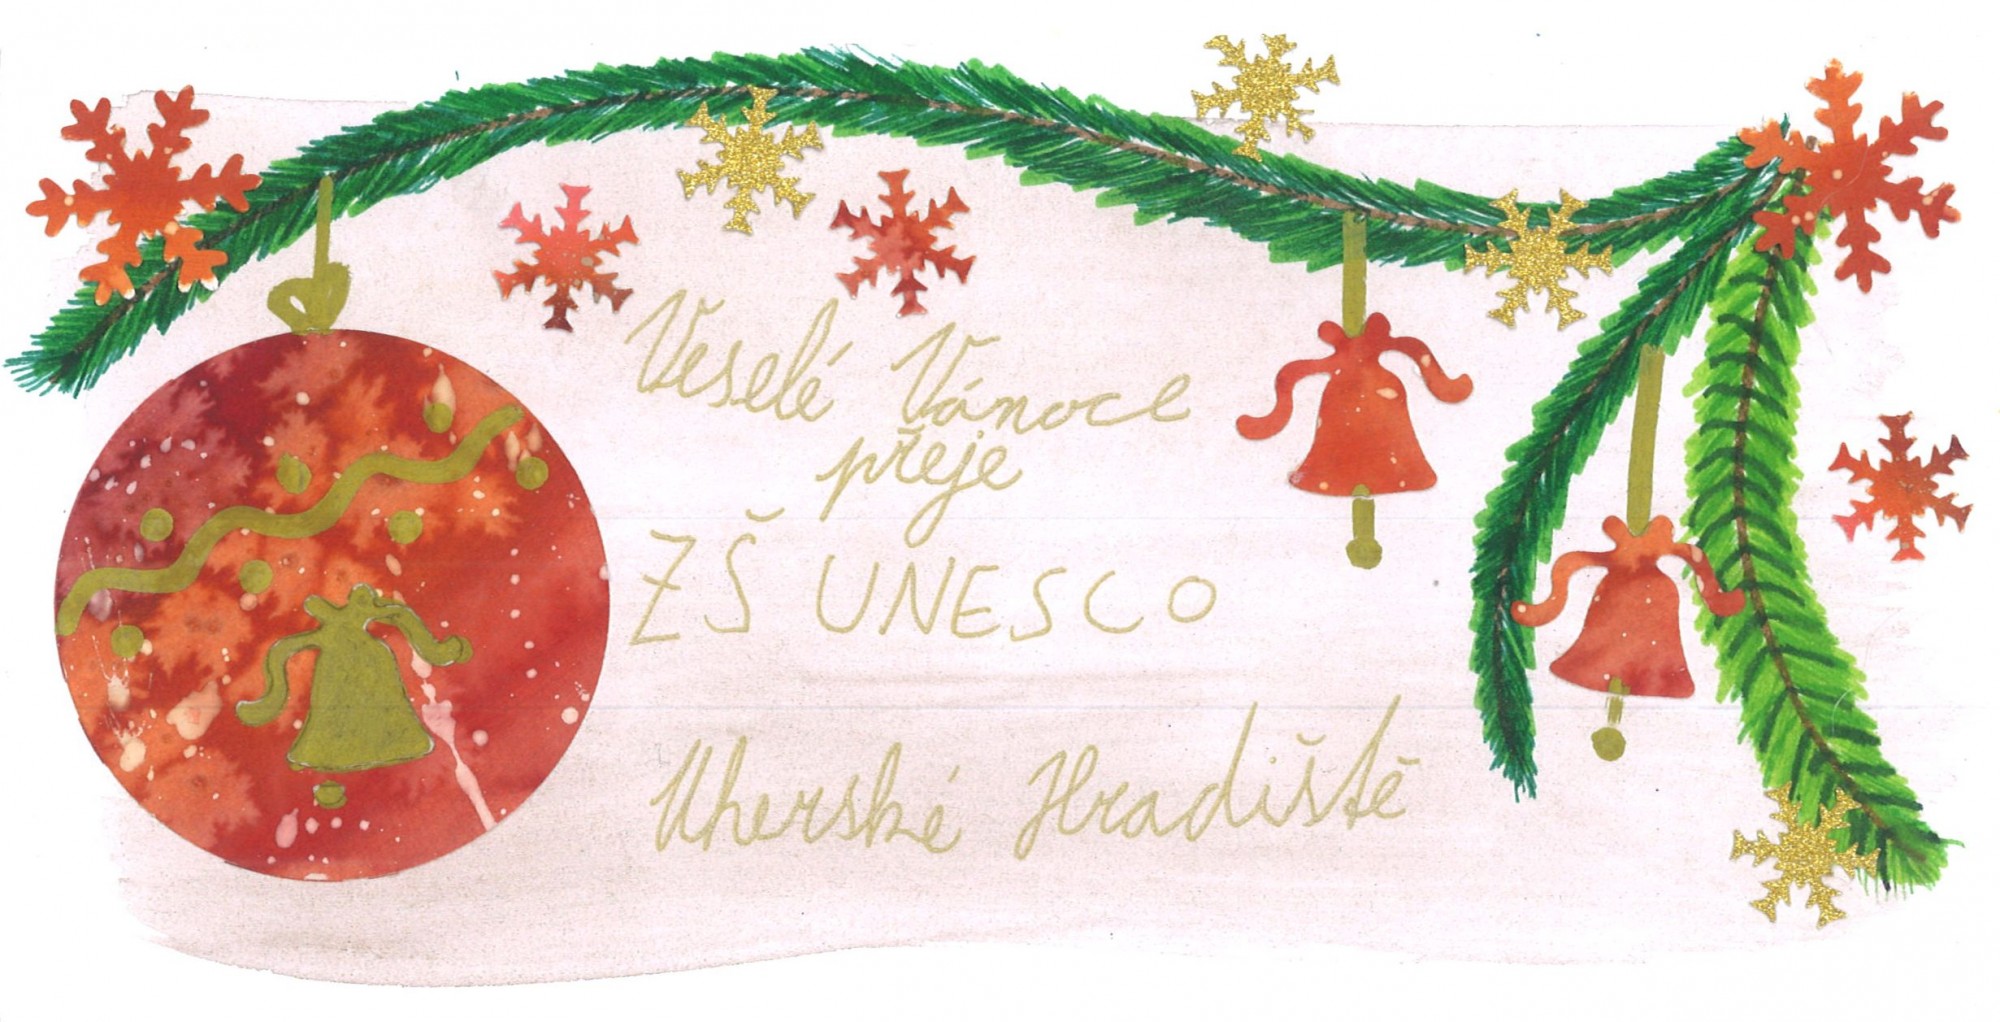 Veselé Vánoce
přeje
ZŠ UNESCO
Uherské Hradiště